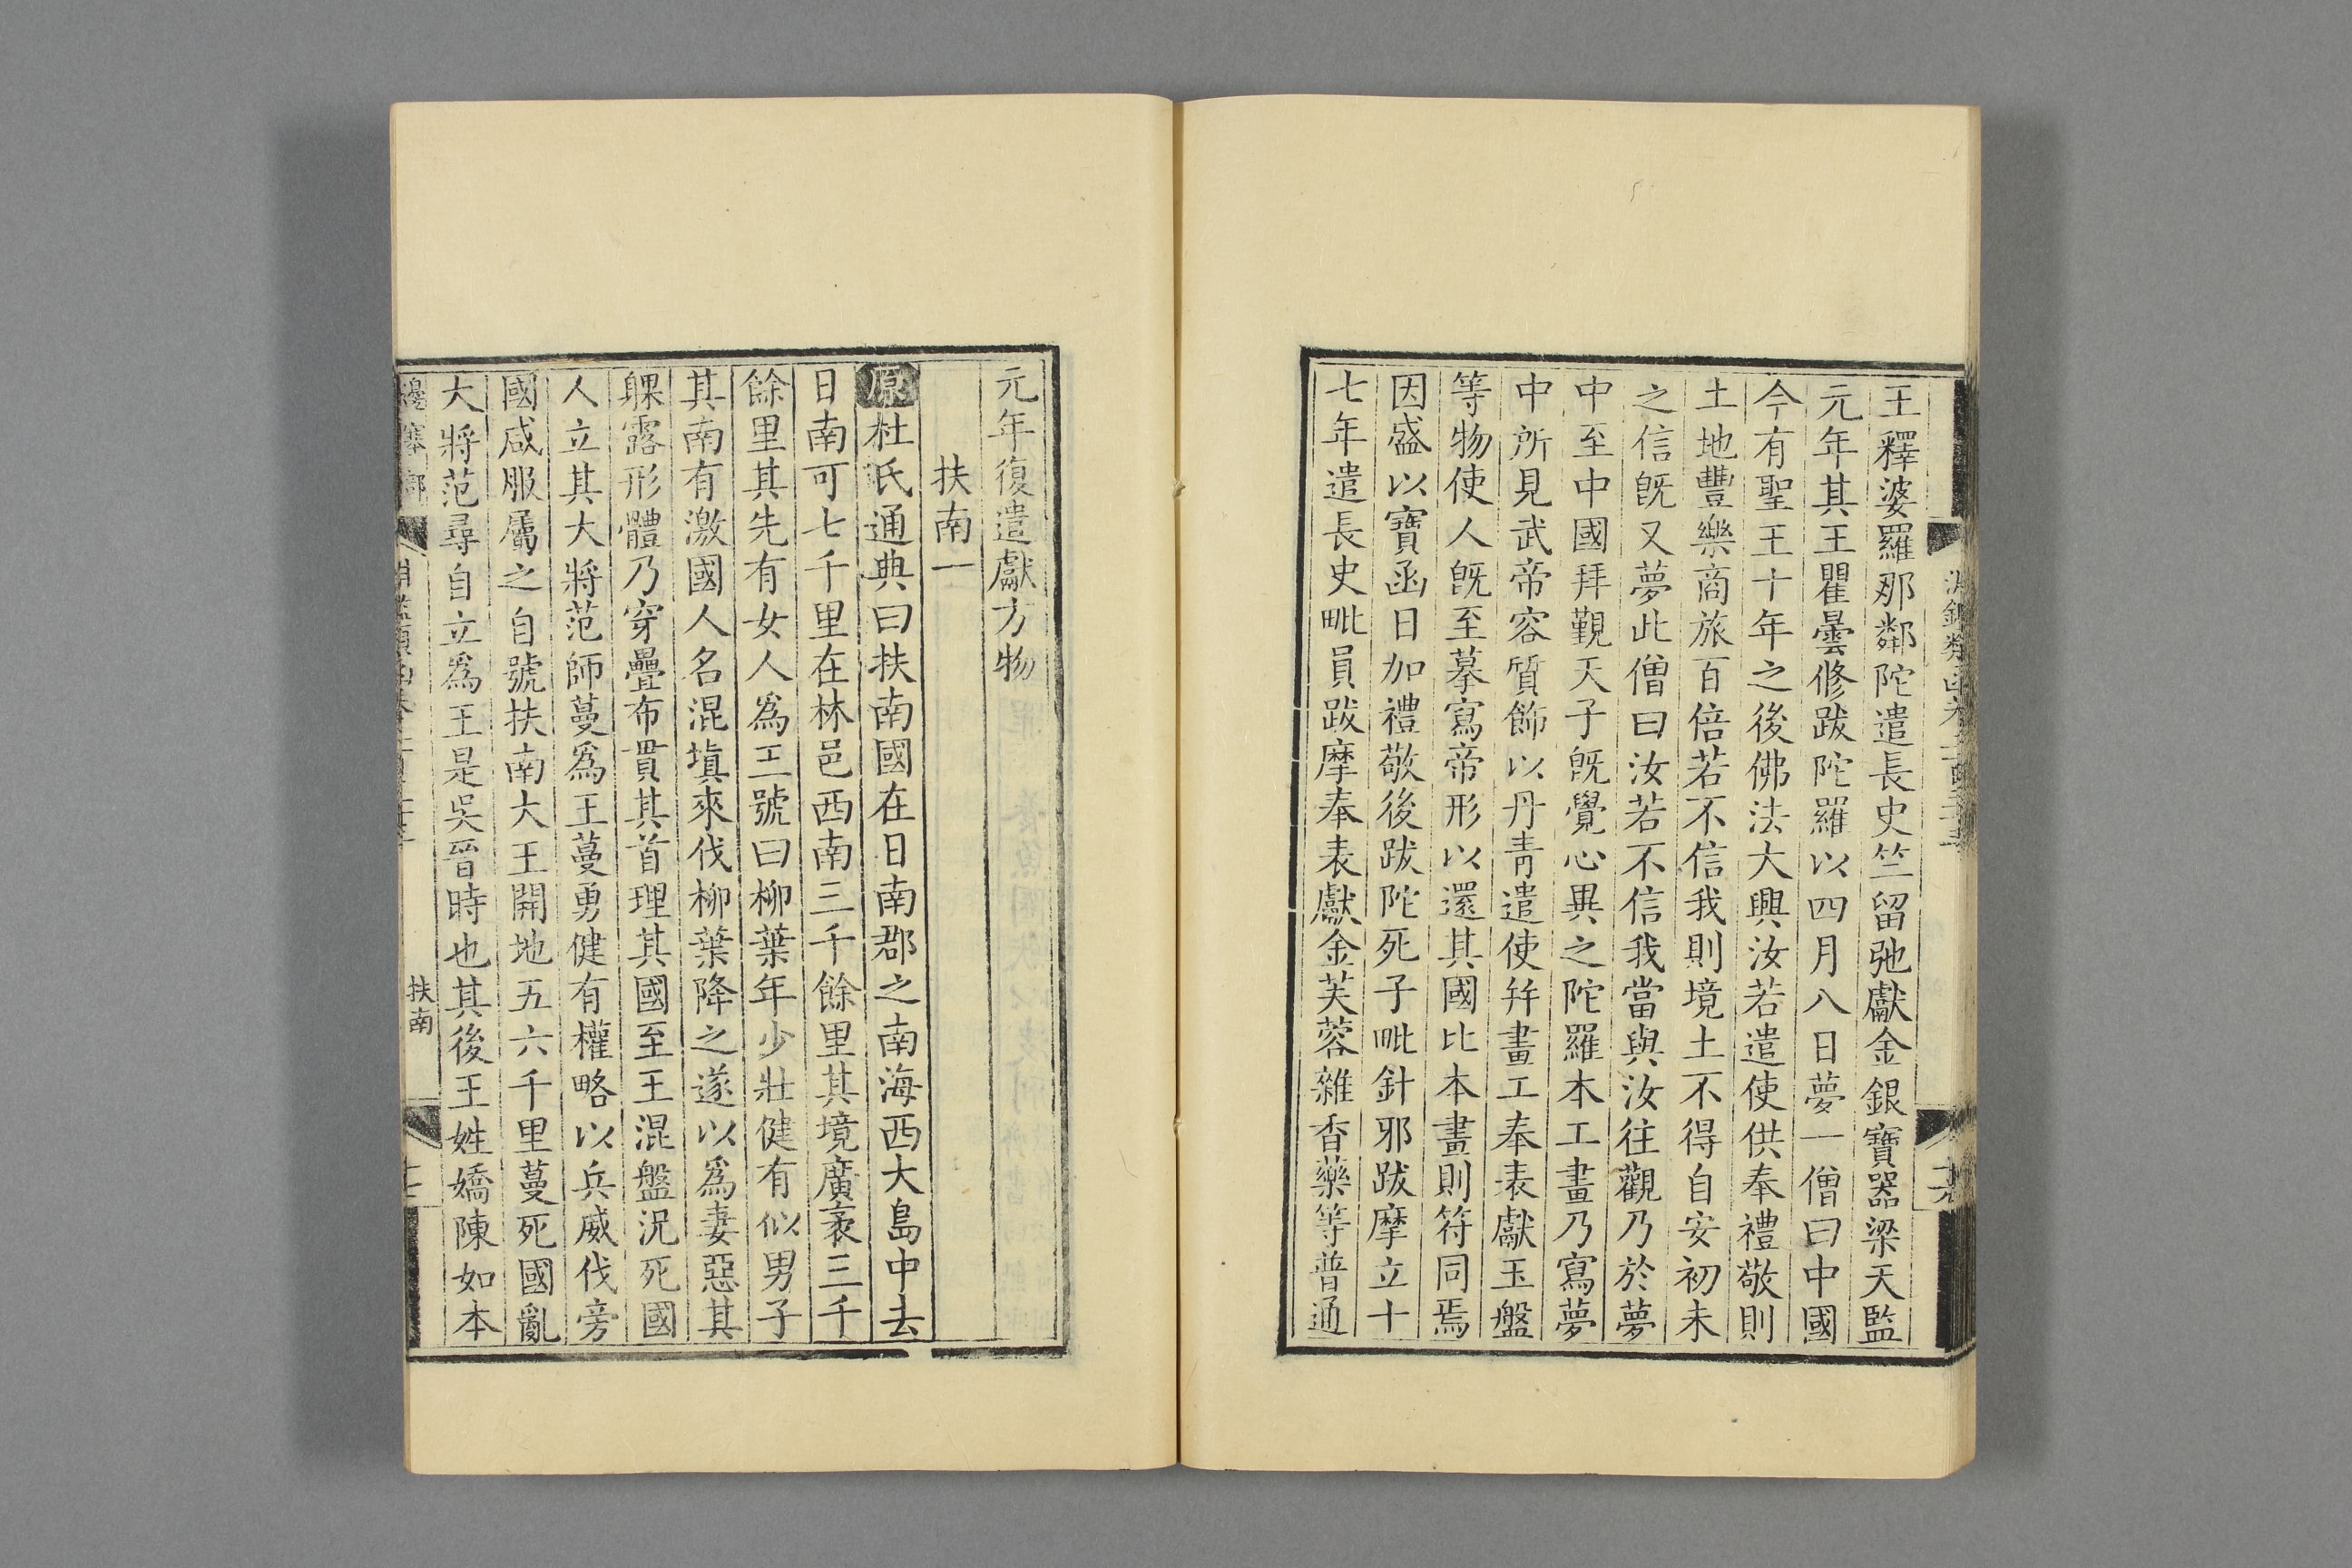 王釋婆羅那鄰陀遣長史竺留弛獻金銀寶器梁天監
元年其王瞿曇修跋陀羅以四月八日夢一僧曰中國
今有聖王十年之後佛法大興汝若遣使供奉禮敬則
土地豐樂商旅百倍若不信我則境土不得自安初未
之信旣又夢此僧曰汝若不信我當與汝往觀乃於夢
中至中國拜覲天子旣覺心異之陀羅本工畫乃寫夢
中所見武帝容質飾以丹青遣使幷畫工奉表獻玉盤
等物使人旣至摹寫帝形以還其國比本畫則符同焉
因盛以寶函日加禮敬後跋陀死子毗針邪跋摩立十
七年遣長史毗員跋摩奉表獻金芙蓉雜香藥等普通
元年復遣獻方物
扶南一
原杜氏通典曰扶南國在日南郡之南海西大島中去
日南可七千里在林邑西南三千餘里其境廣袤三千
餘里其先有女人爲王號曰柳葉年少壯健有似男子
其南有激國人名混塡來伐柳葉降之遂以爲妻惡其
躶露形體乃穿疊布貫其首理其國至王混盤況死國
人立其大將范師蔓爲王蔓勇健有權略以兵威伐旁
國咸服屬之自號扶南大王開地五六千里蔓死國亂
大將范尋自立爲王是吳晉時也其後王姓嬌陳如本
邊塞部
扶南